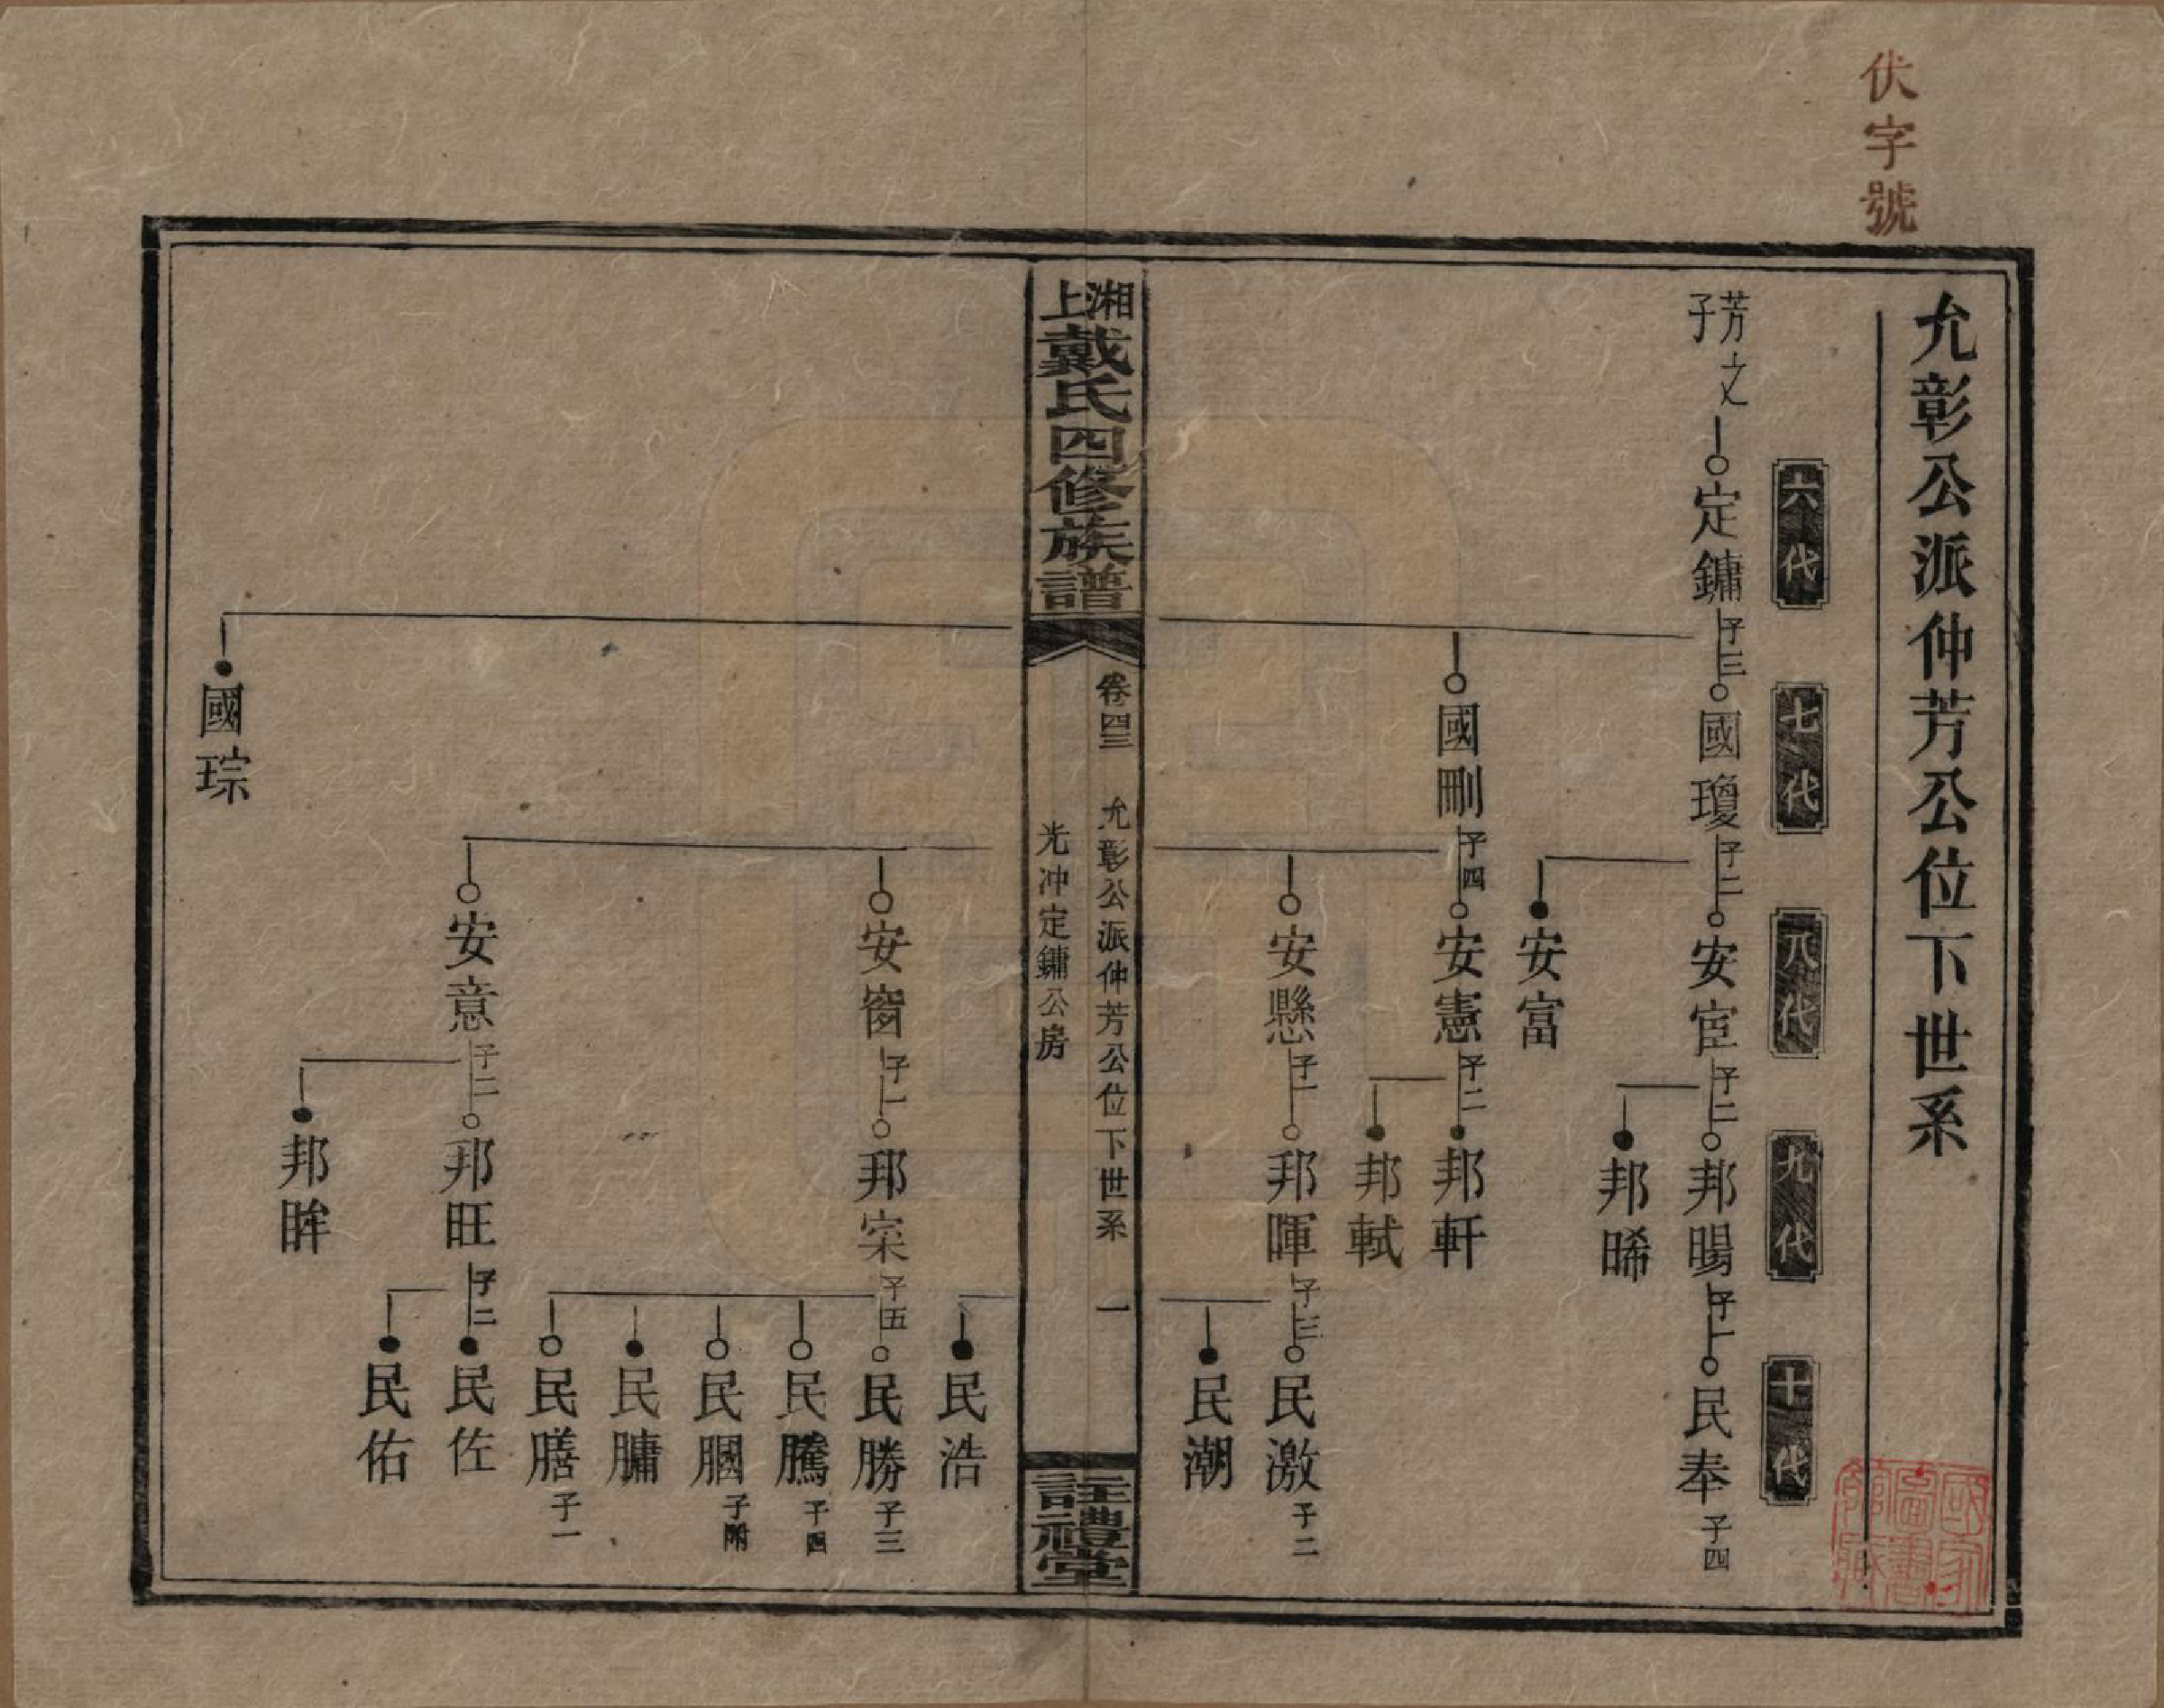 伏字號
允彰公派仲芳公位下世系
六代
七代
八代
九代
十代
芳文子
定鏞 子三
國瓊 子二
安宦 子二
邦暘 子一
民奉 子四
邦晞
安富
國剛 子四
安憲 子二
邦軒
邦軾
安懸 子一
邦暉 子三
民激 子二
民潮
湘上戴氏四修族譜
卷四三
允彰公派仲芳公位下世系
一
光冲定鏞公房
註禮堂
民浩
安窗 子一
邦宲 子五
民勝 子三
民騰 子四
民膕 子附
民牗
民膳 子一
安意 子二
邦旺 子二
民佐
民佑
邦眸
國琮
國家圖書館藏